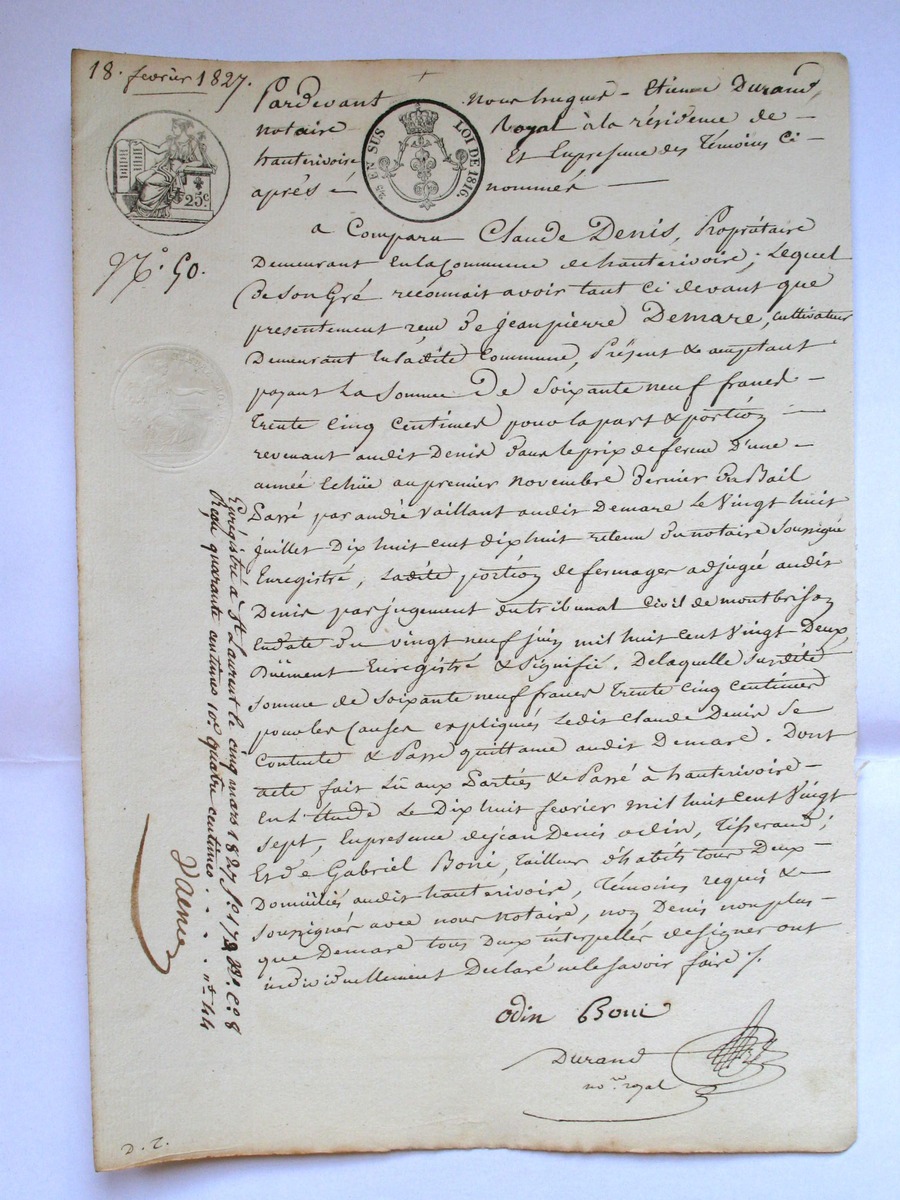 18. fevrier 1827.
Pardevant nous hugues - Etienne Durand,
notaire Royal à la résidence de -
hauterivoire Et Enpresence des Témoins ci -
après - nommés -
25c
EN SUS
LOI DE 1816.
N.° 50.
a Comparu Claude Denis, Propriétaire
Demeurant Enlacommune de hauterivoire; Lequel
de son Gré reconnait avoir tant ci devant que
présentement reçu de jeanpierre Demare, cultivateur
Demeurant Enladite Commune, Présent & acceptant
payant La Somme De Soixante neuf francs -
trente cinq Centimes pour la part & portion -
revenant audit Denis dans le prix de ferme d'une -
année Echüe au premier novembre Dernier du Bail
Passé par andré Vaillant audit Demare le Vingt huit
juillet Dix huit cent dix huit retenu du notaire soussigné
Enregistré; Ladite portion de fermages adjugée audit
Denis par jugement du tribunal Civil de montbrison
Endate du vingt neuf juin mil huit cent Vingt Deux,
Duëment Enregistré & Signifié. De laquelle susdite
somme de soixante neuf francs trente cinq Centimes
pour les Causes expliquées Ledit Claude Denis se
Contente & Passe quittance audit Demare. Dont
acte fait Lû aux Parties & Passé à hauterivoire -
En L'étude Le Dix huit fevrier mil huit cent Vingt
sept, Enpresence de jean Denis odin, Tisserand;
Et de Gabriel Boni, Tailleur d'habits tous Deux -
Domiciliés audit hauterivoire, Témoins requis &
soussignés avec nous notaire, non Denis non plus -
que Demare tous deux interpellés de signer ont
individuellement Declaré ne le savoir faire /.
odin Boni
Durand
no.re royal
Enregistré à St Laurent le cinq mars 1827 f.° 178 R.° C.e 8
Reçu quarante centimes 10e quatre centimes . . .
D. T.